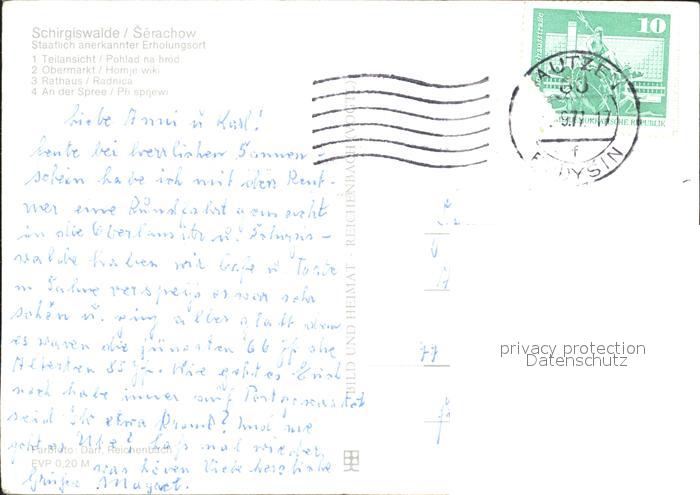 Schirgiswalde / Šěrachow
Staatlich anerkannter Erholungsort
1 Teilansicht / Pohlad na hród
2 Obermarkt / Hornje wiki
3 Rathaus / Radnica
4 An der Spree / Při sprjewi
10
DEMOKRATISCHE REPUBLIK
BAUTZEN
BUDYSIN
f
Liebe Anni u Karl!
heute bei herrlichen Sonnen-
schein habe ich mit den Rent-
ner eine Rundfahrt gemacht
in die Oberlausitz u. Schirgis-
walde haben wir Cafe u. Torte
m Sahne verspeist es war sehr
schön u. ging alles glatt denn
es waren die jüngsten 66 J die
Ältesten 85 J. Wie geht es Euch
noch habe immer auf Post gewartet
seid Ihr etwa krank? Und wie
geht es Ute? Lass mal wieder
was hören Viele herzliche
Grüße Margot.
Farbfoto: Darr, Reichenbach
EVP 0,20 M
BILD UND HEIMAT · REICHENBACH (VOGTL)
77
privacy protection
Datenschutz